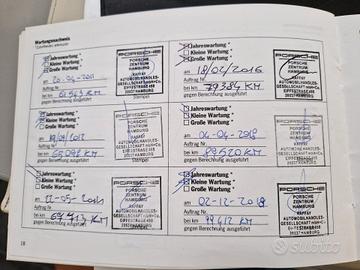 Wartungsnachweis
Jahreswartung *
Kleine Wartung *
Große Wartung *
am 20-04-2011
Auftrag Nr.
bei km 61543 KM
gegen Berechnung ausgeführt
PORSCHE
PORSCHE
ZENTRUM
HAMBURG
RAFFAY
AUTOMOBILHANDELS-
GESELLSCHAFT
EIFFESTRASSE 498
20537 HAMBURG
Jahreswartung *
Kleine Wartung *
Große Wartung *
am 18/02/2016
Auftrag Nr.
bei km 79384 KM
gegen Berechnung ausgeführt
PORSCHE
PORSCHE
ZENTRUM
HAMBURG
RAFFAY
AUTOMOBILHANDELS-
GESELLSCHAFT
EIFFESTRASSE 498
20537 HAMBURG
Jahreswartung *
Kleine Wartung *
Große Wartung *
Auftrag Nr.
bei km
gegen Berechnung ausgeführt
PORSCHE
PORSCHE
ZENTRUM
HAMBURG
AUTOMOBILHANDELS-
GESELLSCHAFT
EIFFESTRASSE 498
20537 HAMBURG
Jahreswartung *
Kleine Wartung *
Große Wartung *
am 04-04-2018
Auftrag Nr.
bei km 89520 KM
gegen Berechnung ausgeführt
PORSCHE
PORSCHE
ZENTRUM
HAMBURG
AUTOMOBILHANDELS-
GESELLSCHAFT
EIFFESTRASSE 498
20537 HAMBURG
Jahreswartung *
Kleine Wartung *
Große Wartung *
Auftrag Nr.
bei km 69413 KM
gegen Berechnung ausgeführt
PORSCHE
PORSCHE
ZENTRUM
HAMBURG
AUTOMOBILHANDELS-
GESELLSCHAFT
EIFFESTRASSE 498
20537 HAMBURG
Jahreswartung *
Kleine Wartung *
Große Wartung *
am 02-12-2018
Auftrag Nr.
bei km 99412 KM
gegen Berechnung ausgeführt
PORSCHE
PORSCHE
ZENTRUM
HAMBURG
RAFFAY
AUTOMOBILHANDELS-
GESELLSCHAFT
EIFFESTRASSE 498
20537 HAMBURG
18
subito